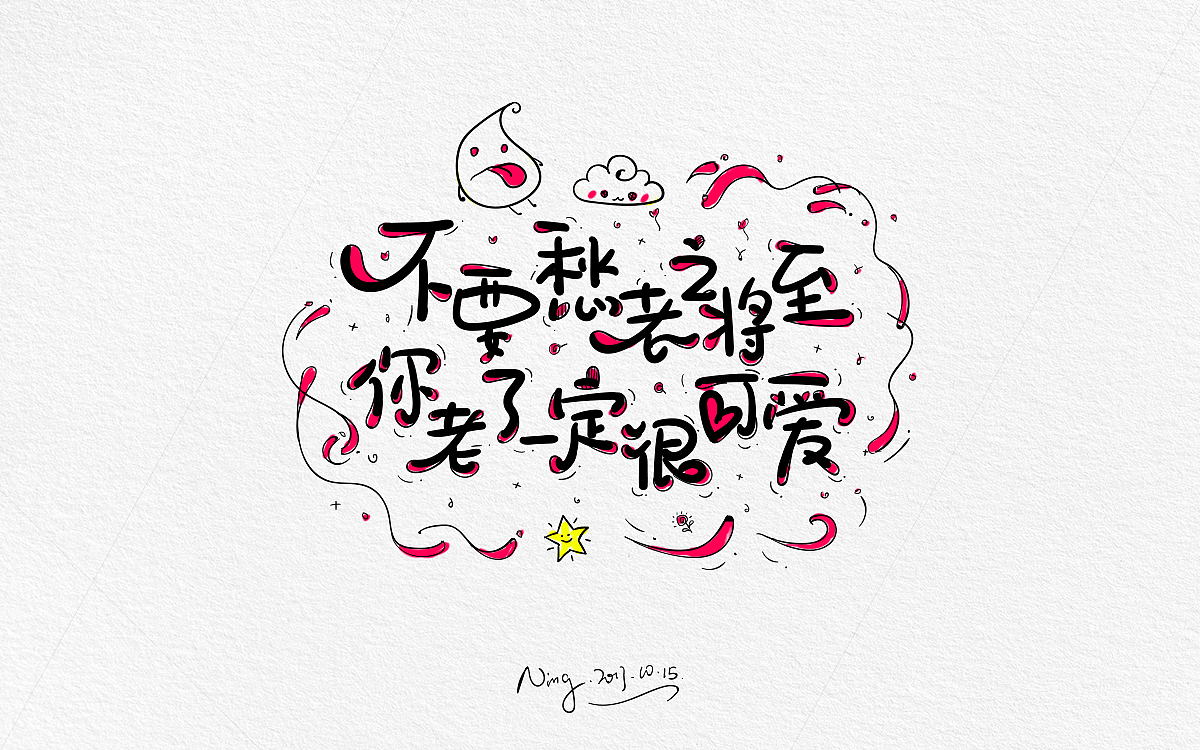 不要愁老之将至
你老了一定很可爱
Ning